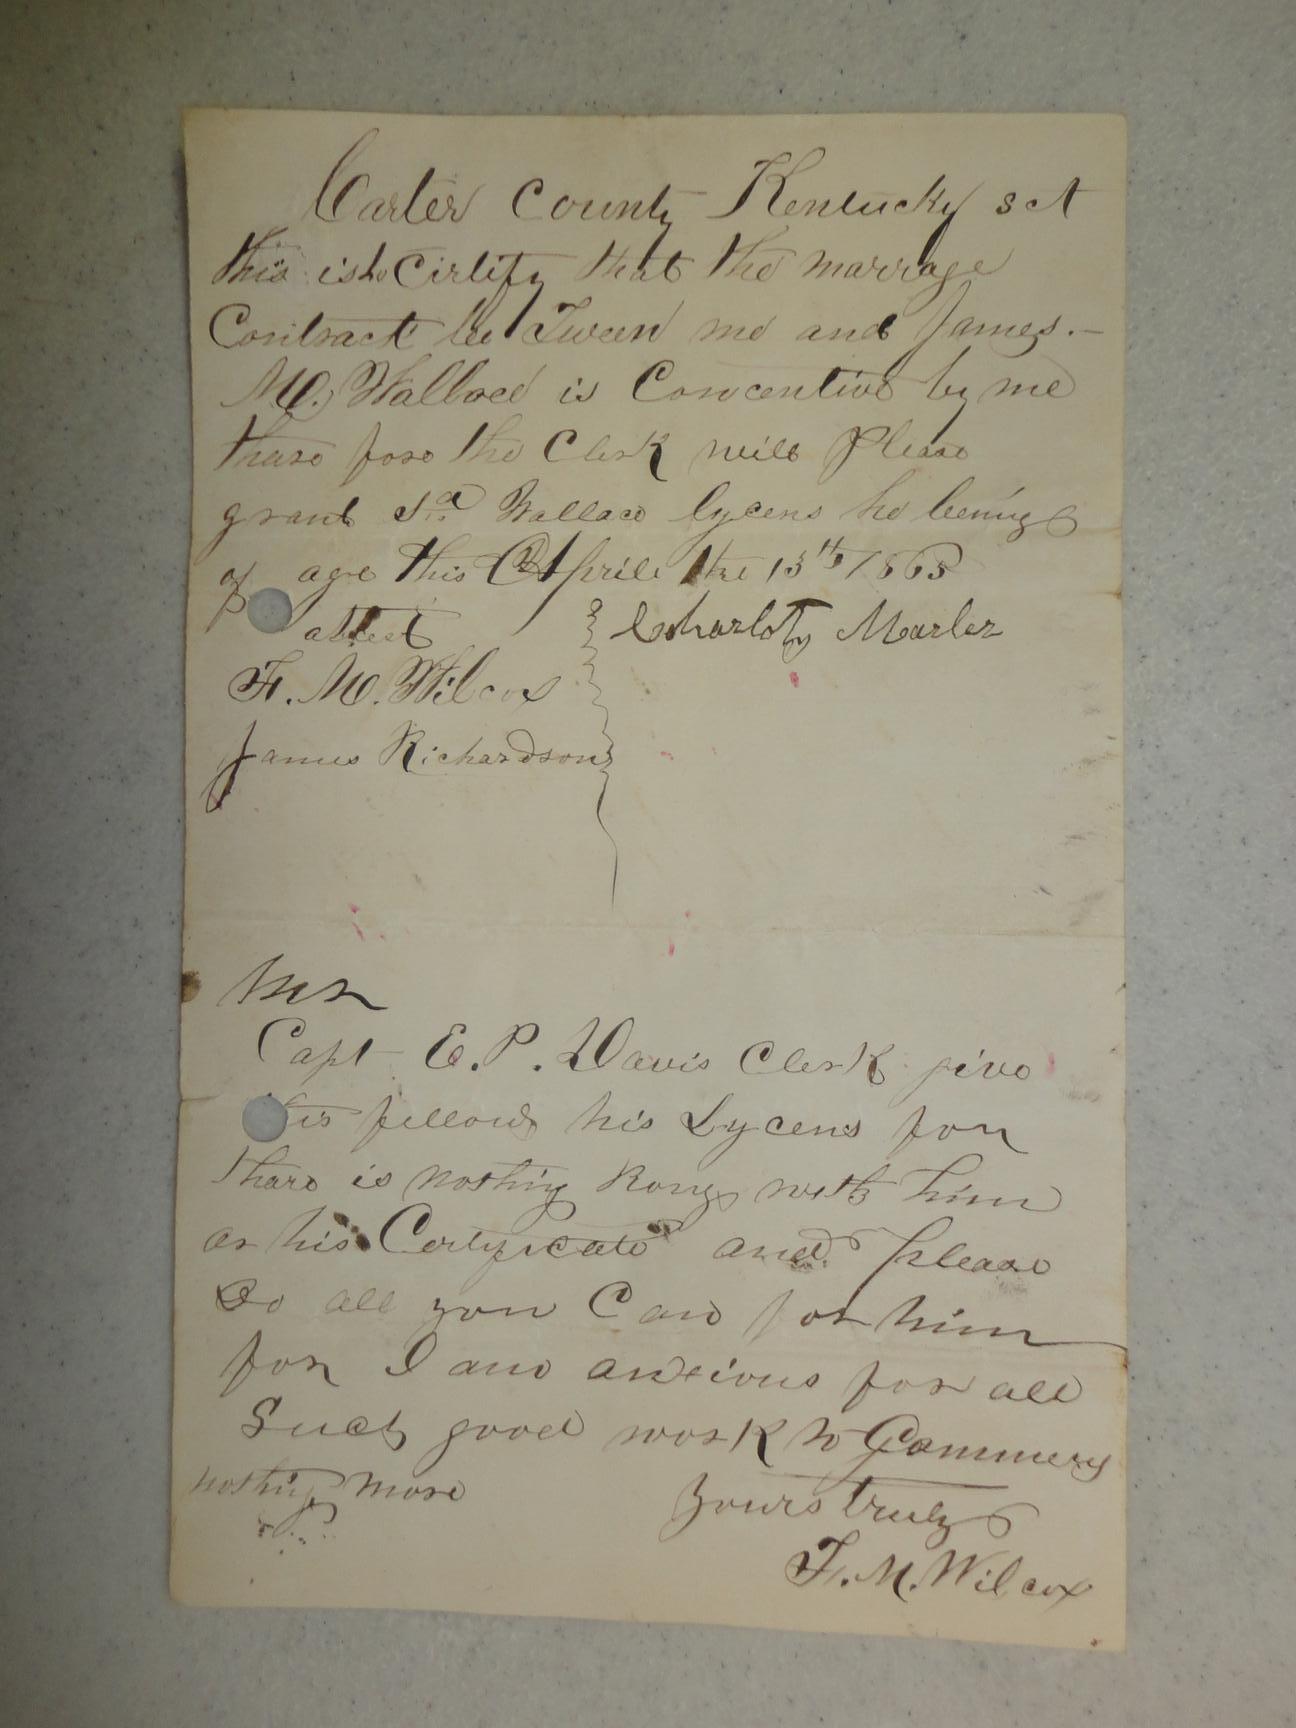 Carter County Kentucky sct
this is to Cirtify that the marrage
Contract be Tween me and James.-
M. Wallace is Concentive by me
thare fore the Clerk will Please
grant sd Wallace lycens he being
of age this April the 13th 1865
attest Charloty Marler
F. M. Wilcox
James Richardson
Mr
Capt E. P. Davis Clerk give
this fellow his Lycens for
thare is nothing Rong with him
or his Certyficate and Please
do all you Can for him
for I am anxious for all
Such good work to
nothing more yours truly
F. M. Wilcox